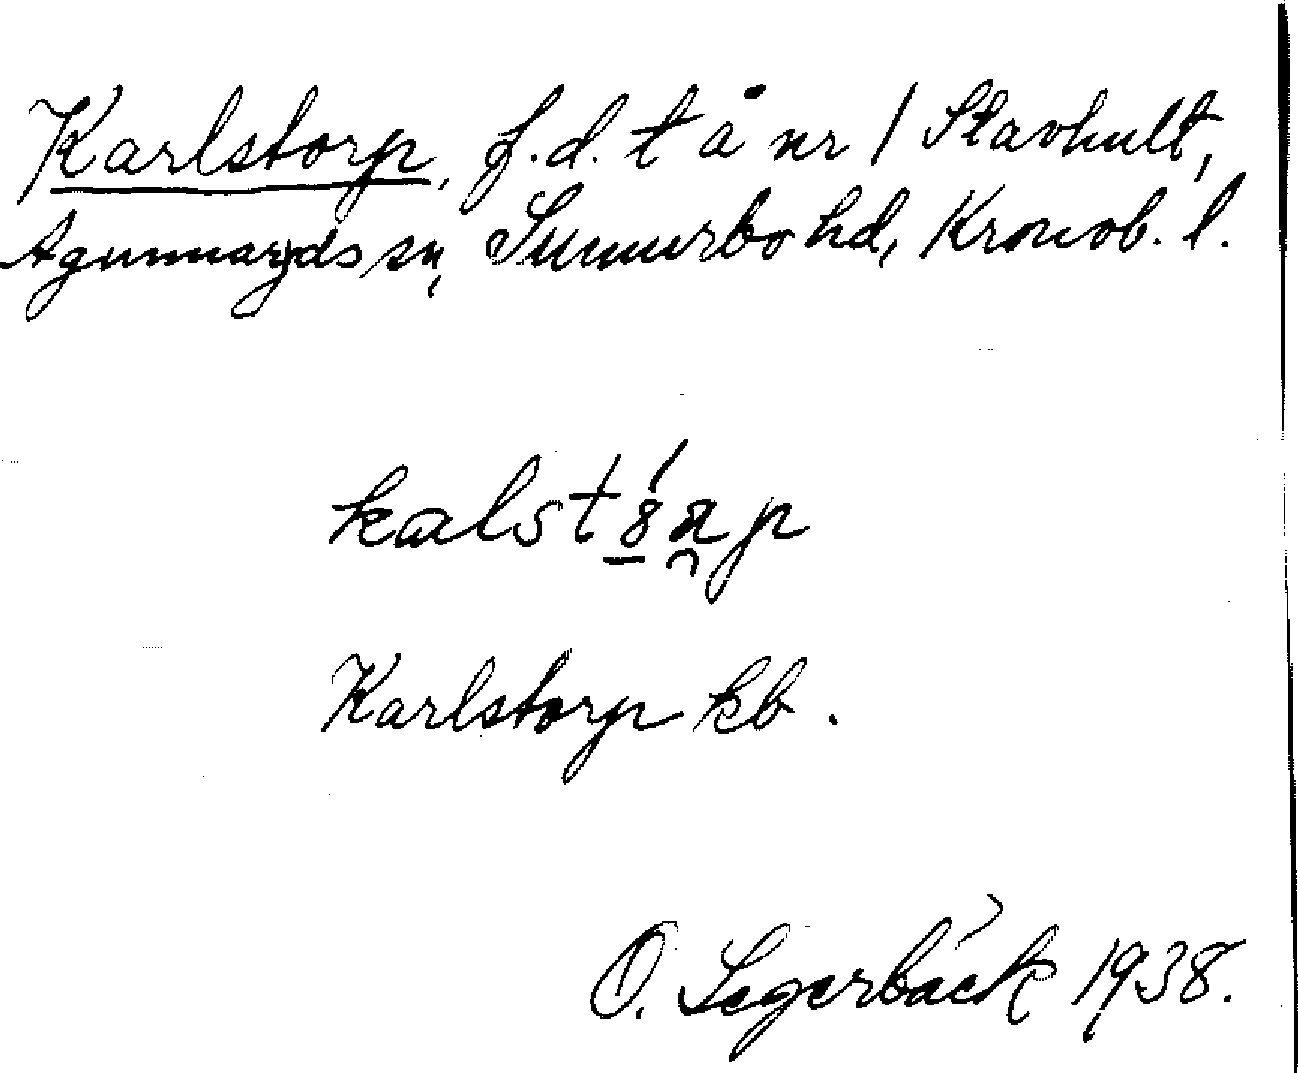 Karlstorp, f.d. t å nr 1 Stavhult,
Agunnaryds sn, Sunnerbo hd, Kronob. l.
Karlstorp kb.
O. Segerbäck 1938.